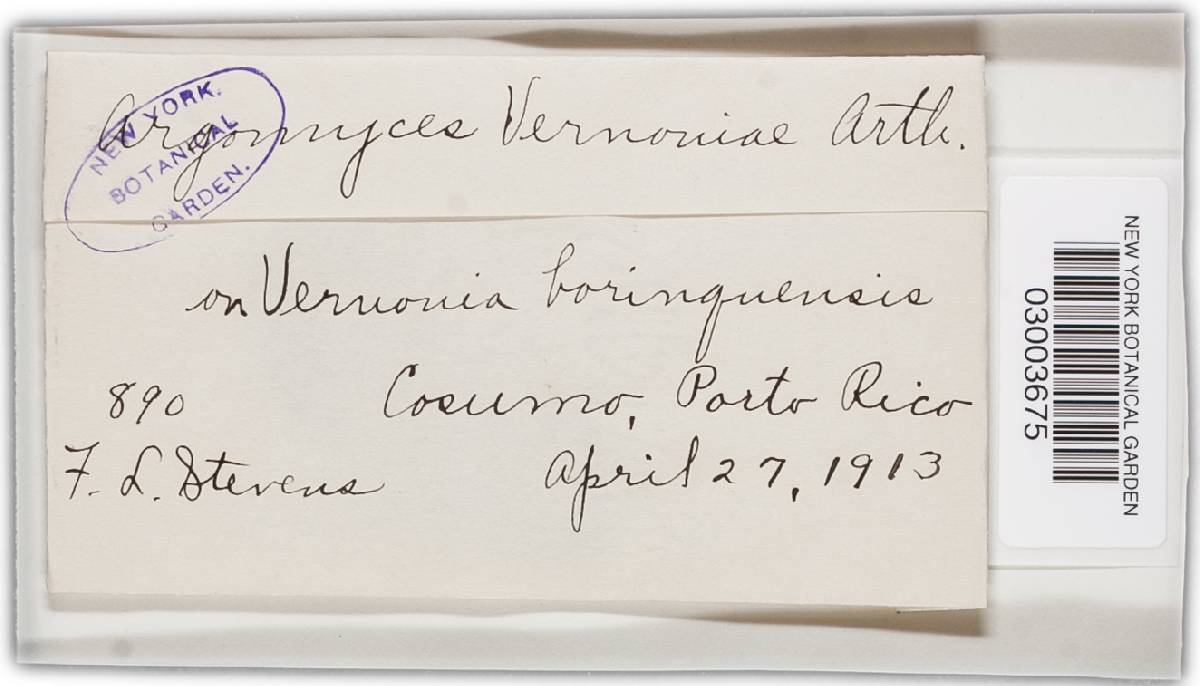 Argomyces Vernoniae Arth.
NEW YORK.
BOTANICAL
GARDEN.
on Vernonia borinquensis
890 Cosumo, Porto Rico
F. L. Stevens April 27, 1913
NEW YORK BOTANICAL GARDEN
03003675